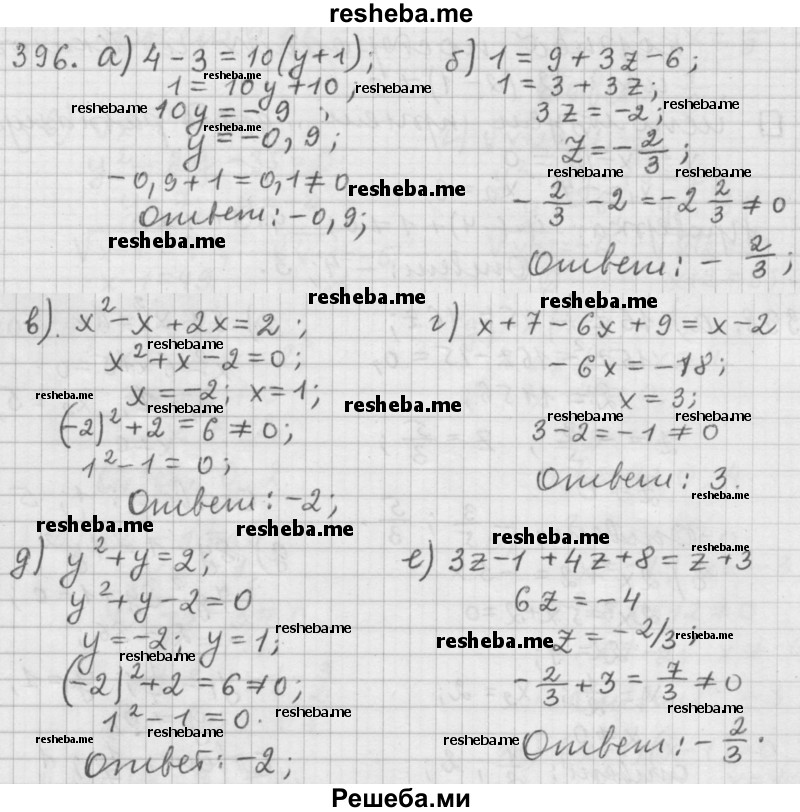 resheba.me
396. а) 4 - 3 = 10(y+1);
1 = 10y + 10,
resheba.me
resheba.me 10y = -9 ;
resheba.me
y = -0,9;
-0,9 + 1 = 0,1 ≠ 0
resheba.me
Ответ: -0,9;
resheba.me
б) 1 = 9 + 3z - 6;
1 = 3 + 3z;
3z = -2; resheba.me
z = -2/3 ;
resheba.me resheba.me
-2/3 - 2 = -2 2/3 ≠ 0
Ответ: - 2/3;
resheba.me
в). x² - x + 2x = 2 ;
resheba.me
x² + x - 2 = 0;
resheba.me x = -2; x = 1;
resheba.me resheba.me
(-2)² + 2 = 6 ≠ 0;
1² - 1 = 0;
Ответ: -2;
resheba.me
resheba.me
resheba.me
г) x + 7 - 6x + 9 = x - 2
-6x = -18;
x = 3;
resheba.me resheba.me
3 - 2 = -1 ≠ 0
Ответ: 3.
resheba.me
д) y² + y = 2;
y² + y - 2 = 0
y = -2; y = 1; resheba.me
resheba.me
(-2)² + 2 = 6 ≠ 0;
1² - 1 = 0. resheba.me
resheba.me resheba.me
Ответ: -2;
resheba.me
е) 3z - 1 + 4z + 8 = z + 3
resheba.me
6z = -4
resheba.me z = -2/3; resheba.me
-2/3 + 3 = 7/3 ≠ 0
resheba.me
resheba.me Ответ: -2/3.
Решеба.ми